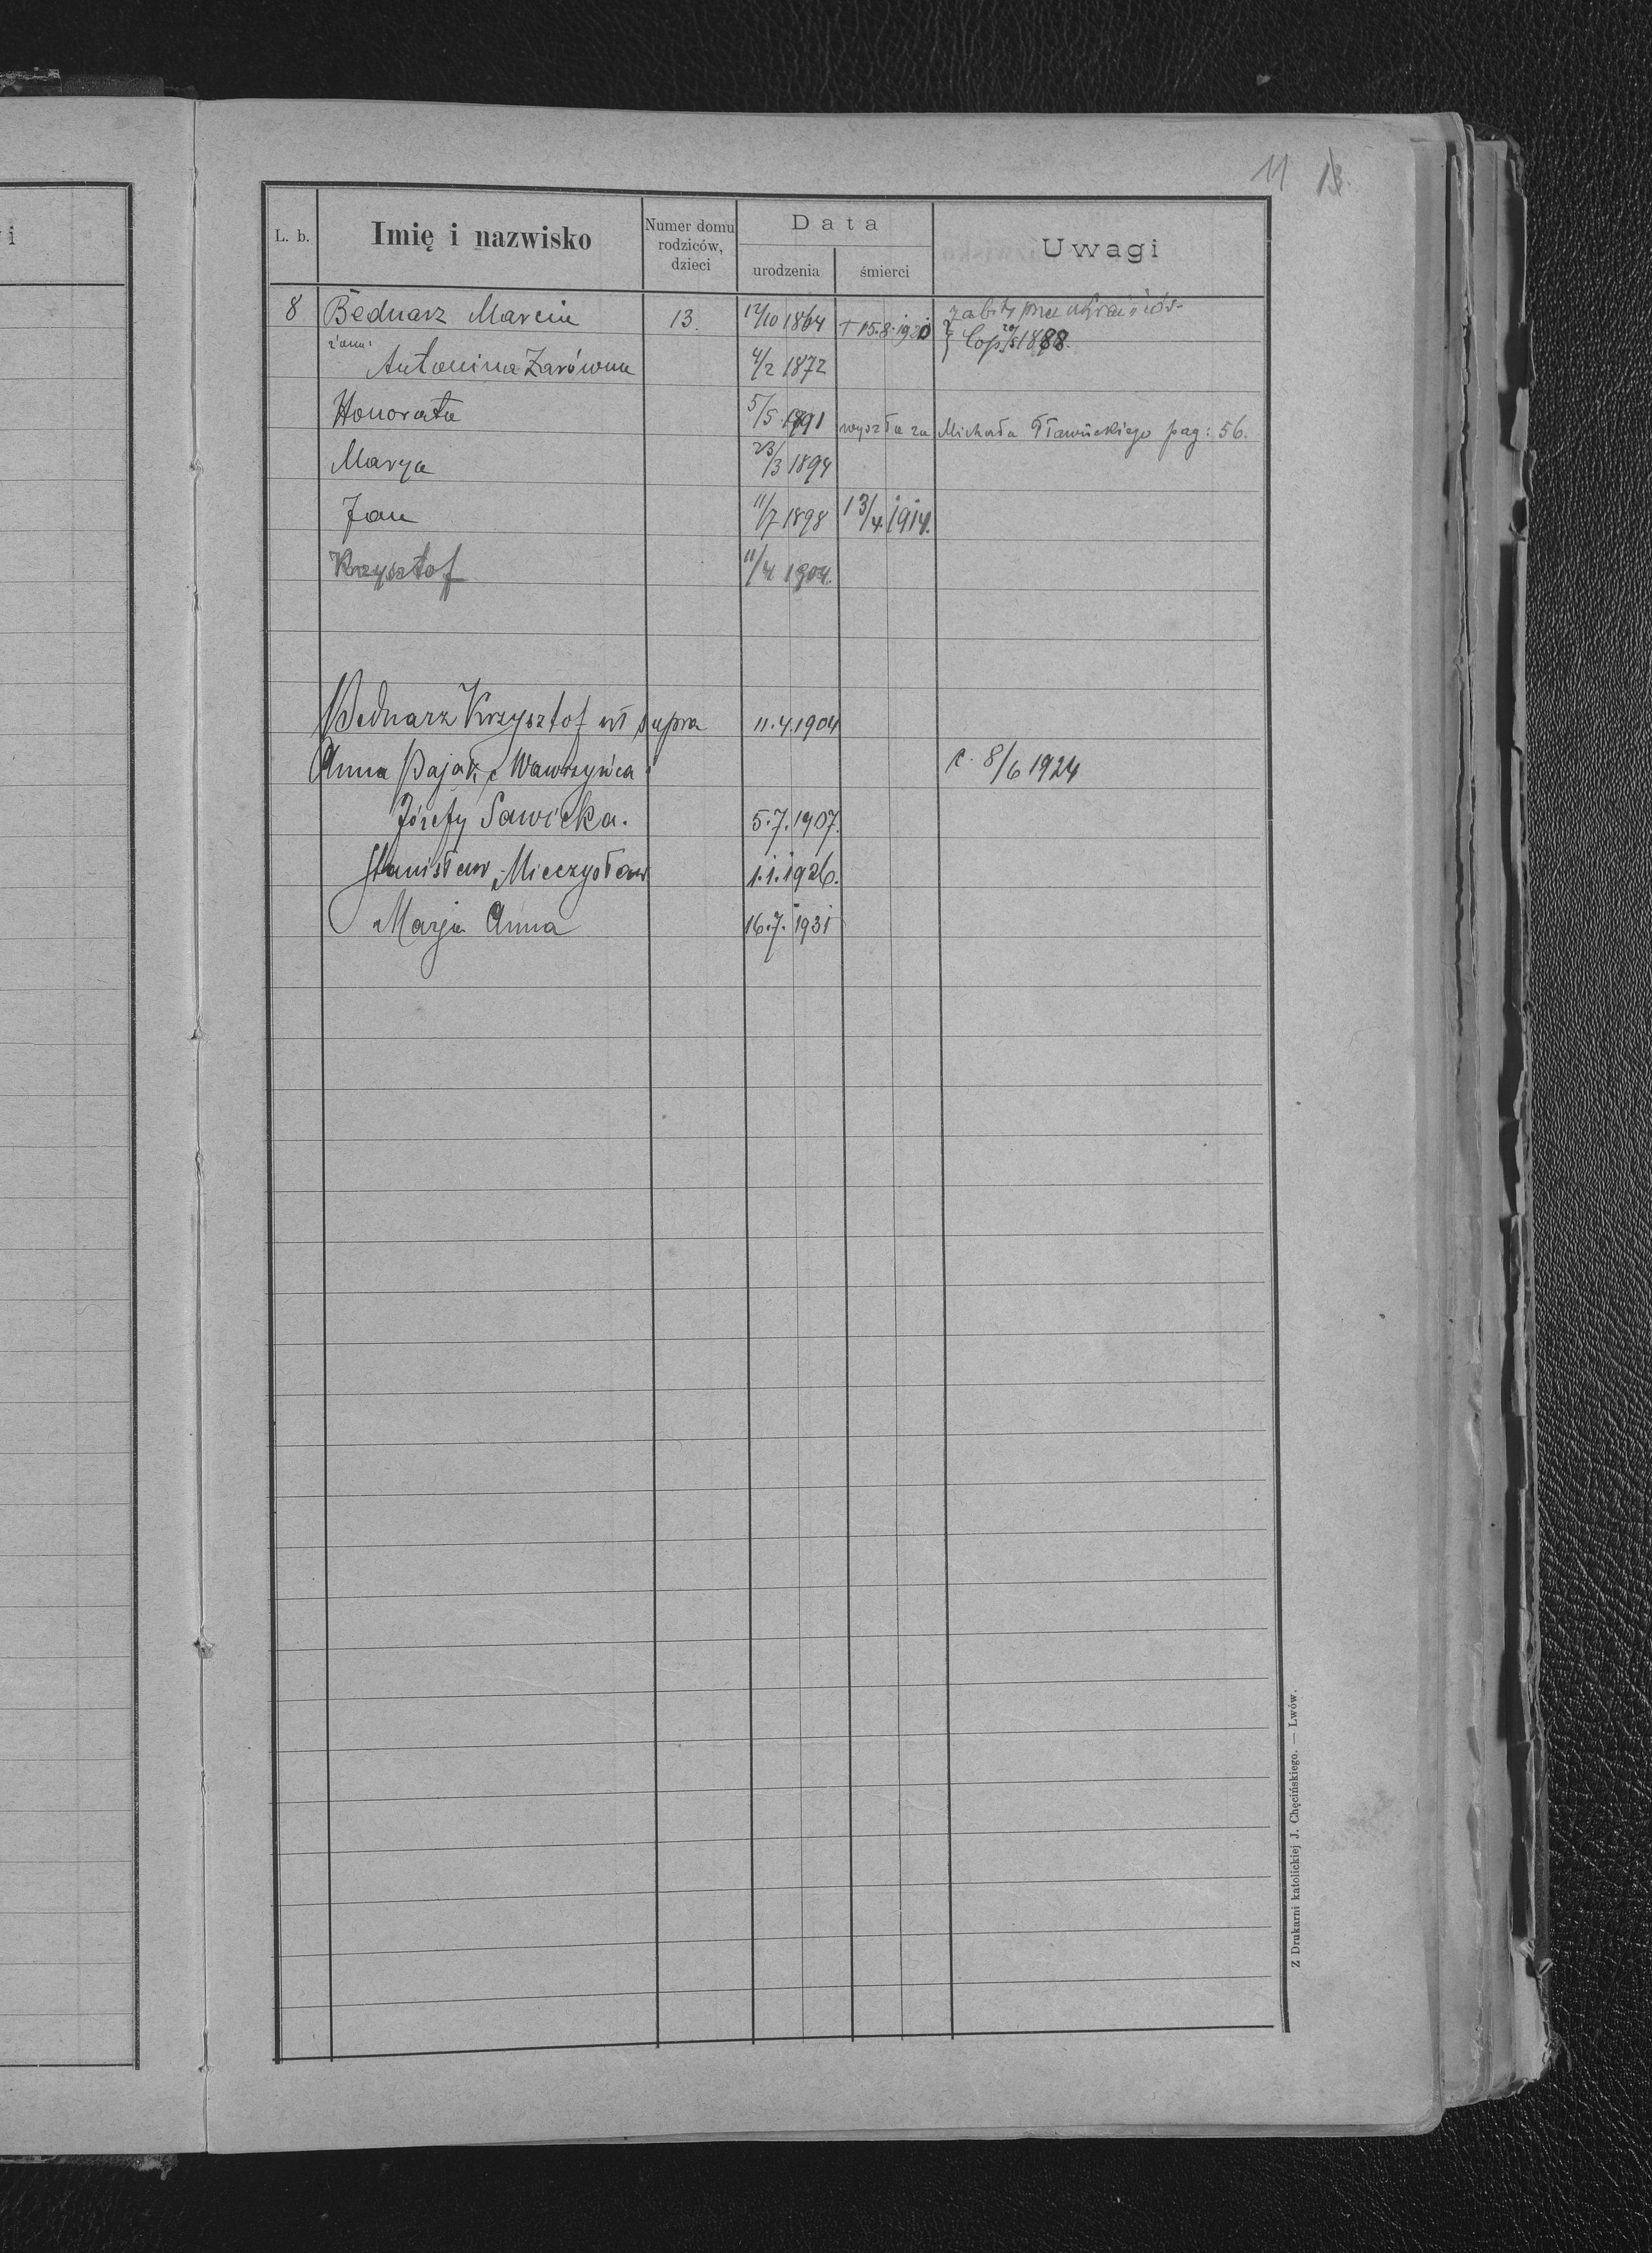 11 13.
i
L. b. Imię i nazwisko Numer domu rodziców, dzieci Data urodzenia śmierci Uwagi
8 Bednarz Marcin 13. 12/10 1864 † 15.8.1920 zabity
Cop. 1888.
żona: Antonina Zarówna 4/2 1872
Honorata 5/5 1891 wyszła za Michała pag: 56.
Marya 23/3 1894
Jan 11/7 1898 13/4 1914.
Krzysztof 11/4 1904.
Bednarz Krzysztof ut supra 11.4.1904
Anna Pająk, c Wawrzyńca i c. 8/6 1924
Józefy Sawicka. 5.7.1907.
Stanisław, Mieczysław 1.1.1926.
Marja Anna 16.7.1931
Z Drukarni katolickiej J. Chęcińskiego. — Lwów.